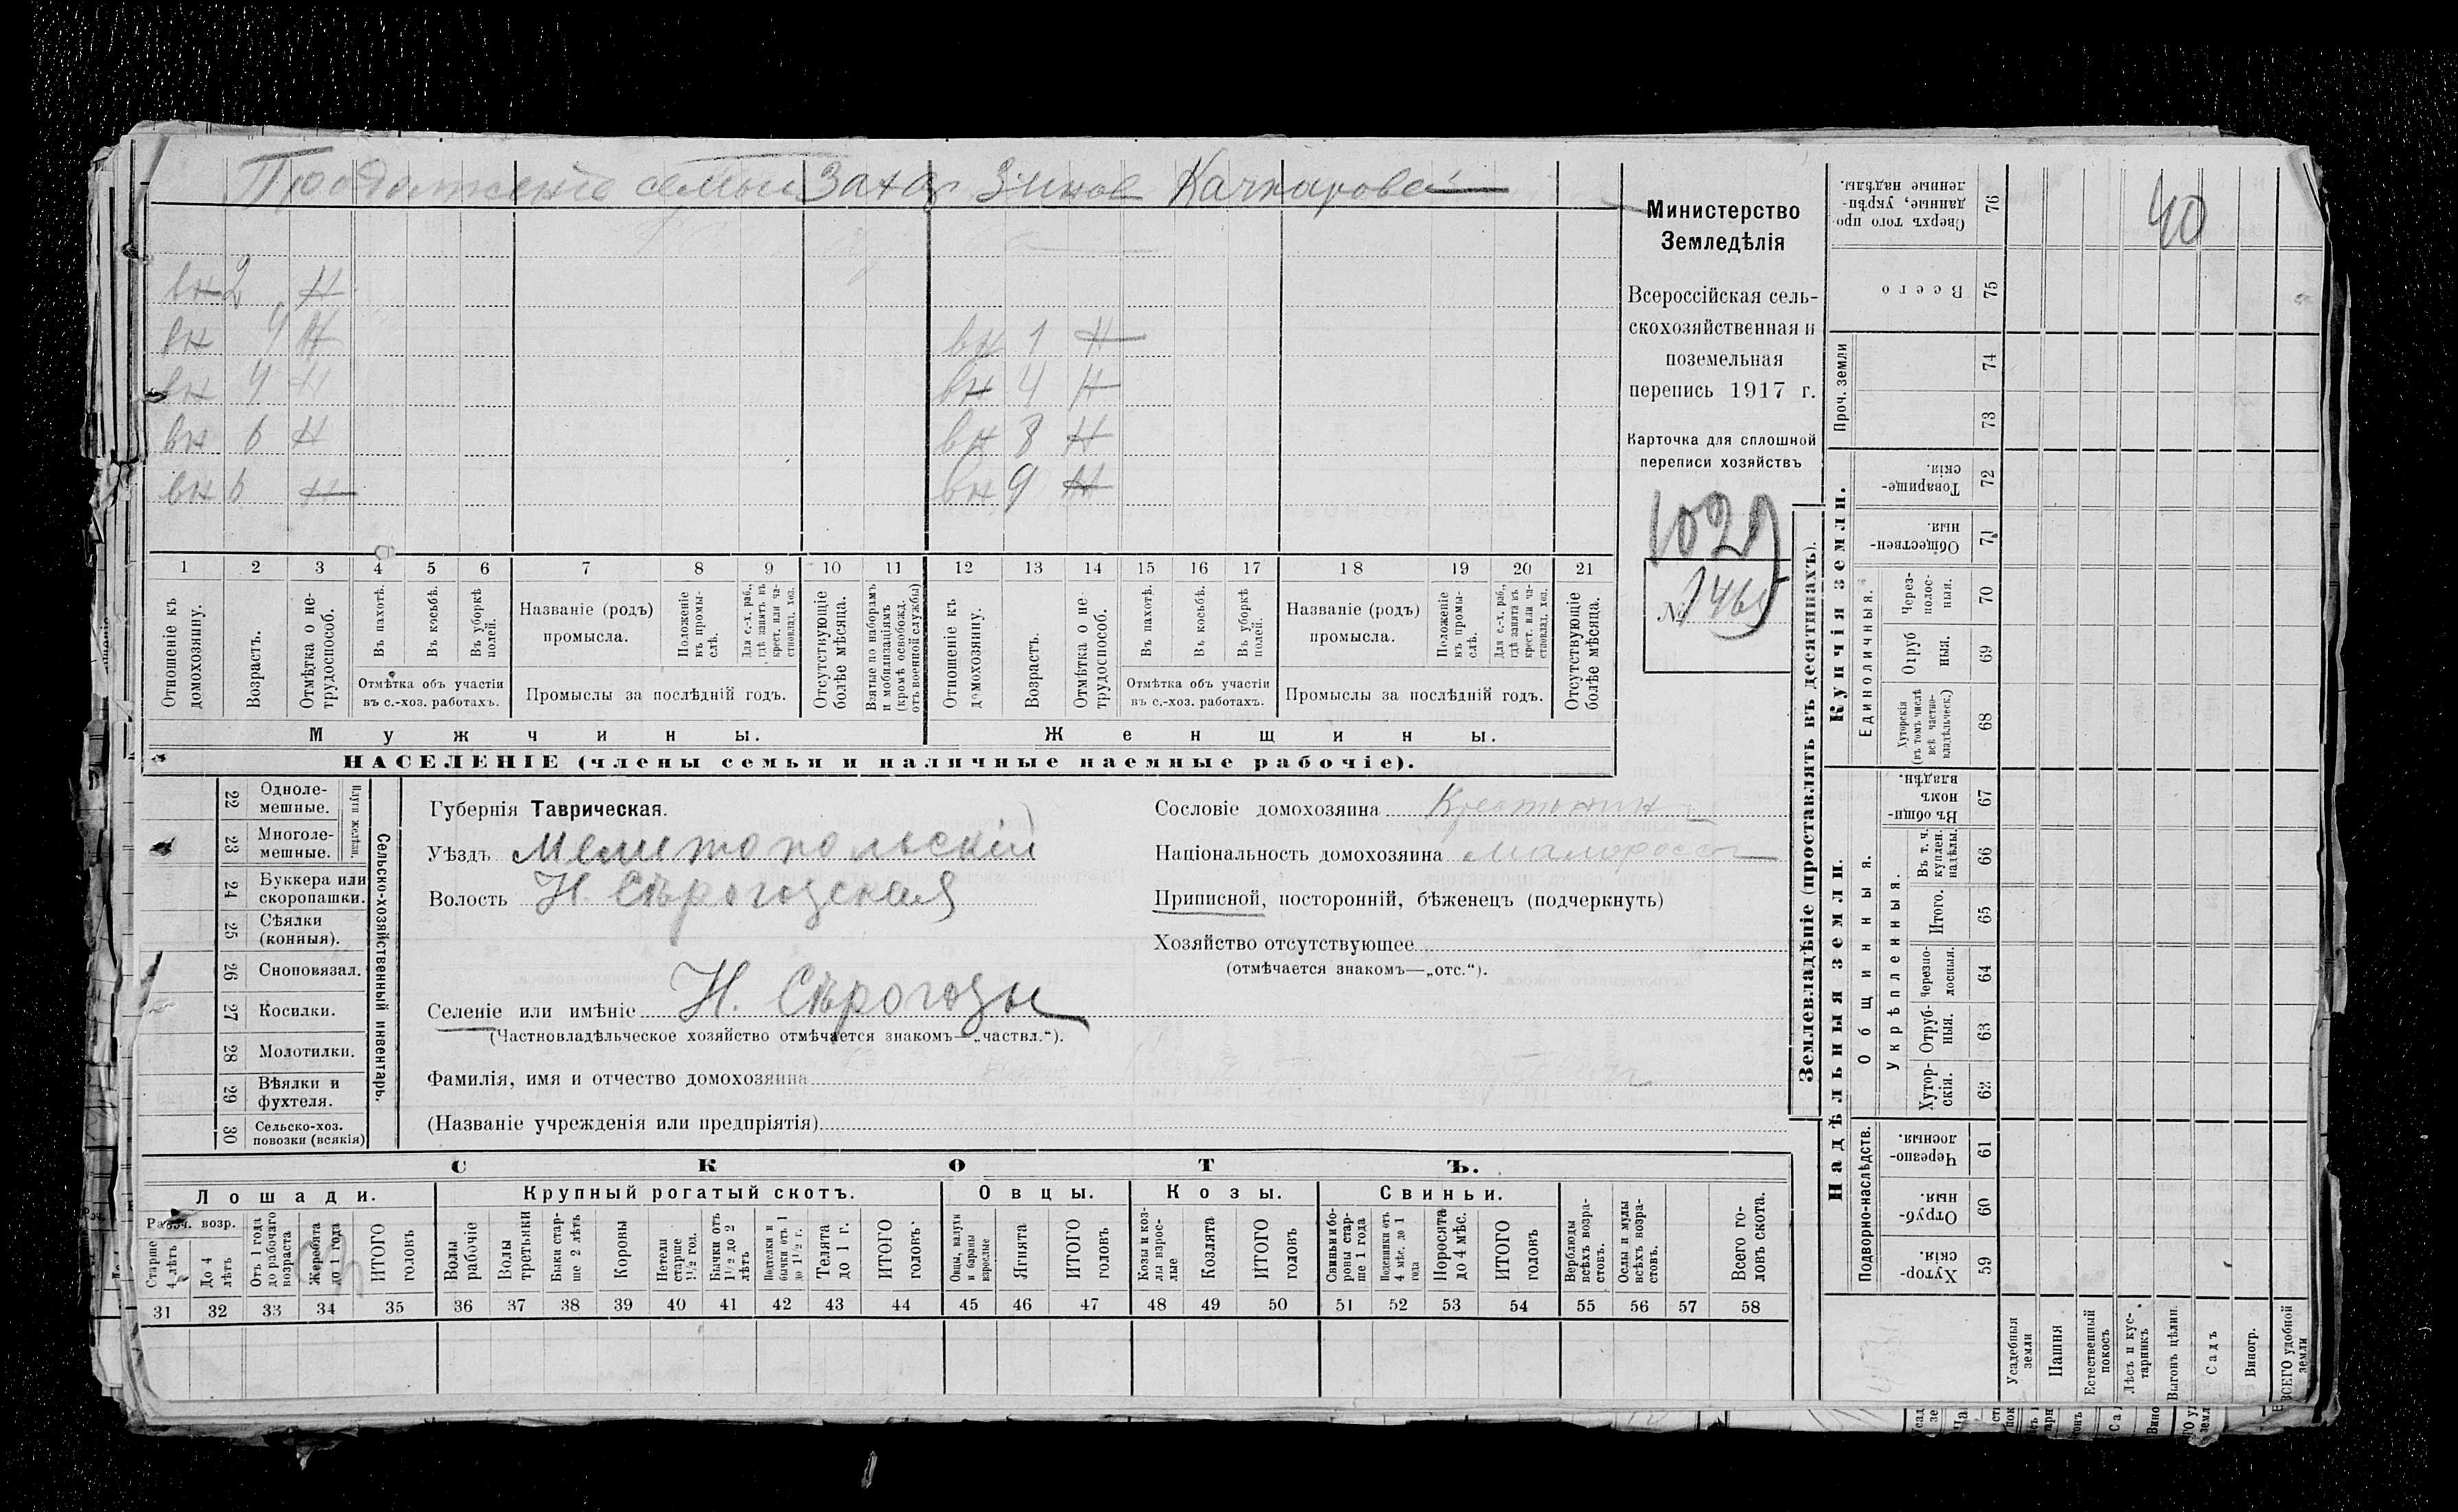 Продолженіе семьи Захар Зинов Качкаровой
вн 2 Н
вн 4 Н
вн 4 Н
вн 6 Н
вн 6 Н
вн 1 Н
вн 4 Н
вн 8 Н
вн 9 Н
1 2 3 4 5 6 7 8 9 10 11 12 13 14 15 16 17 18 19 20 21
Отношеніе къ домохозяину.
Возрастъ.
Отмѣтка о нетрудоспособ.
Въ пахотѣ.
Въ косьбѣ.
Въ уборкѣ полей.
Отмѣтка объ участіи
въ с.-хоз. работахъ.
Названіе (родъ)
промысла.
Положеніе въ промыслѣ.
Для с.-х. раб., гдѣ занятъ въ крест. или частновлад. хоз.
Промыслы за послѣдній годъ.
Отсутствующіе болѣе мѣсяца.
Взятые по наборамъ и мобилизаціямъ (кромѣ освобожд. отъ военной службы)
Отношеніе къ домохозяину.
Возрастъ.
Отмѣтка о нетрудоспособ.
Въ пахотѣ.
Въ косьбѣ.
Въ уборкѣ полей.
Отмѣтка объ участіи
въ с.-хоз. работахъ.
Названіе (родъ)
промысла.
Положеніе въ промыслѣ.
Для с.-х. раб., гдѣ занята въ крест. или частновлад. хоз.
Промыслы за послѣдній годъ.
Отсутствующіе болѣе мѣсяца.
Мужчины.
Женщины.
НАСЕЛЕНІЕ (члены семьи и наличные наемные рабочіе).
Министерство
Земледѣлія
Всероссійская сель-
скохозяйственная и
поземельная
перепись 1917 г.
Карточка для сплошной
переписи хозяйствъ
1029
№ 1465
22 Однолемешные.
23 Многолемешные.
Плуги желѣзн.
24 Буккера или скоропашки.
25 Сѣялки (конныя).
26 Сноповязал.
27 Косилки.
28 Молотилки.
29 Вѣялки и фухтеля.
30 Сельско-хоз. повозки (всякія)
Сельско-хозяйственный инвентарь.
Губернія Таврическая.
Уѣздъ Мелитопольскій
Волость Н. Сѣрогозская
Селеніе или имѣніе Н. Сѣрогозы
(Частновладѣльческое хозяйство отмѣчается знакомъ—„частвл.“).
Фамилія, имя и отчество домохозяина
(Названіе учрежденія или предпріятія)
Сословіе домохозяина Крестьянин
Національность домохозяина малоросс
Приписной, посторонній, бѣженецъ (подчеркнуть)
Хозяйство отсутствующее
(отмѣчается знакомъ—„отс.“).
СКОТЪ.
Лошади.
Рабоч. возр.
Старше 4 лѣтъ
До 4 лѣтъ
Отъ 1 года до рабочаго возраста
Жеребята до 1 года
ИТОГО головъ
Крупный рогатый скотъ.
Волы рабочіе
Волы третьяки
Быки старше 2 лѣтъ
Коровы
Нетели старше 1½ год.
Бычки отъ 1½ до 2 лѣтъ
Подтелки и бычки отъ 1 до 1½ г.
Телята до 1 г.
ИТОГО головъ
Овцы.
Овцы, валухи и бараны взрослые
Ягнята
ИТОГО головъ
Козы.
Козы и козлы взрослые
Козлята
ИТОГО головъ
Свиньи.
Свиньи и боровы старше 1 года
Подсвинки отъ 4 мѣс. до 1 года
Поросята до 4 мѣс.
ИТОГО головъ
Верблюды всѣхъ возрастовъ.
Ослы и мулы всѣхъ возрастовъ.
Всего головъ скота.
31 32 33 34 35 36 37 38 39 40 41 42 43 44 45 46 47 48 49 50 51 52 53 54 55 56 57 58
Землевладѣніе (проставлять въ десятинахъ).
Сверхъ того проданные, укрѣпленные надѣлы. 76
Всего 75
Проч. земли 74 73
Купчія земли.
Товарищескія. 72
Общественныя. 71
Единоличныя.
Черезполосныя. 70
Отрубныя. 69
Хуторскія (въ томъ числѣ всѣ частновладѣльческ.) 68
Надѣльныя земли.
Общинныя.
Въ общиномъ владѣн. 67
Укрѣпленныя.
Въ т. ч. куплен. надѣлы. 66
Итого. 65
Черезполосныя. 64
Отрубныя. 63
Хуторскія. 62
Подворно-наслѣдств.
Черезполосныя 61
Отрубныя. 60
Хуторскія. 59
40
Усадебныя земли
Пашня
Естественный покосъ
Лѣсъ и кустарникъ
Выгонъ цѣлин.
Садъ
Виногр.
ВСЕГО удобной земли